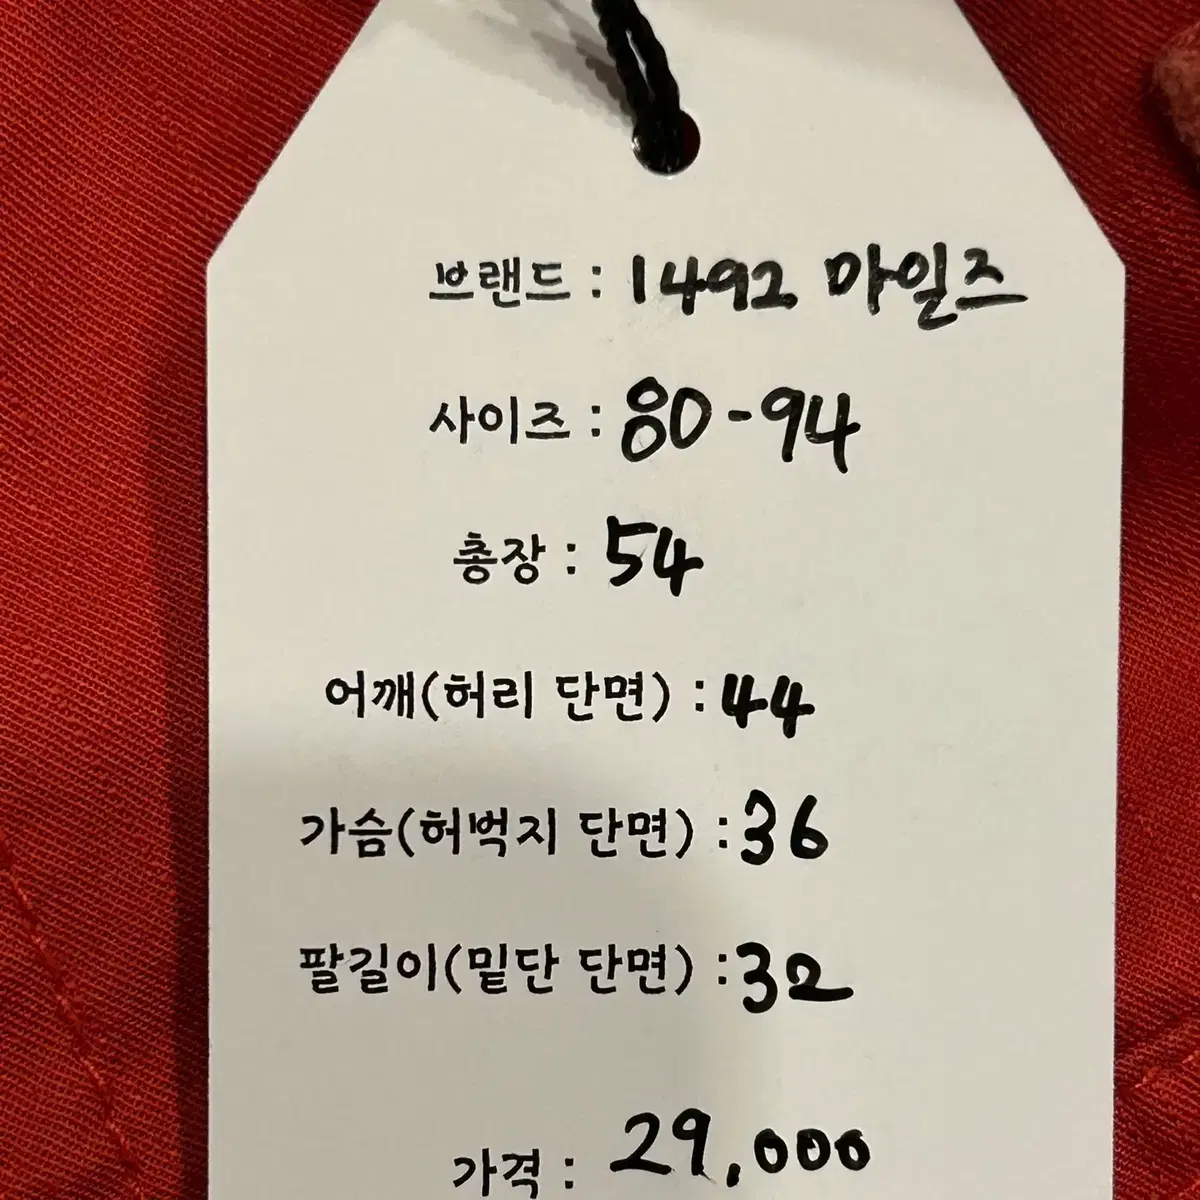 브랜드 : 1492 마일즈
사이즈 : 80-94
총장 : 54
어깨(허리 단면) : 44
가슴(허벅지 단면) : 36
팔길이(밑단 단면) : 32
가격 : 29,000